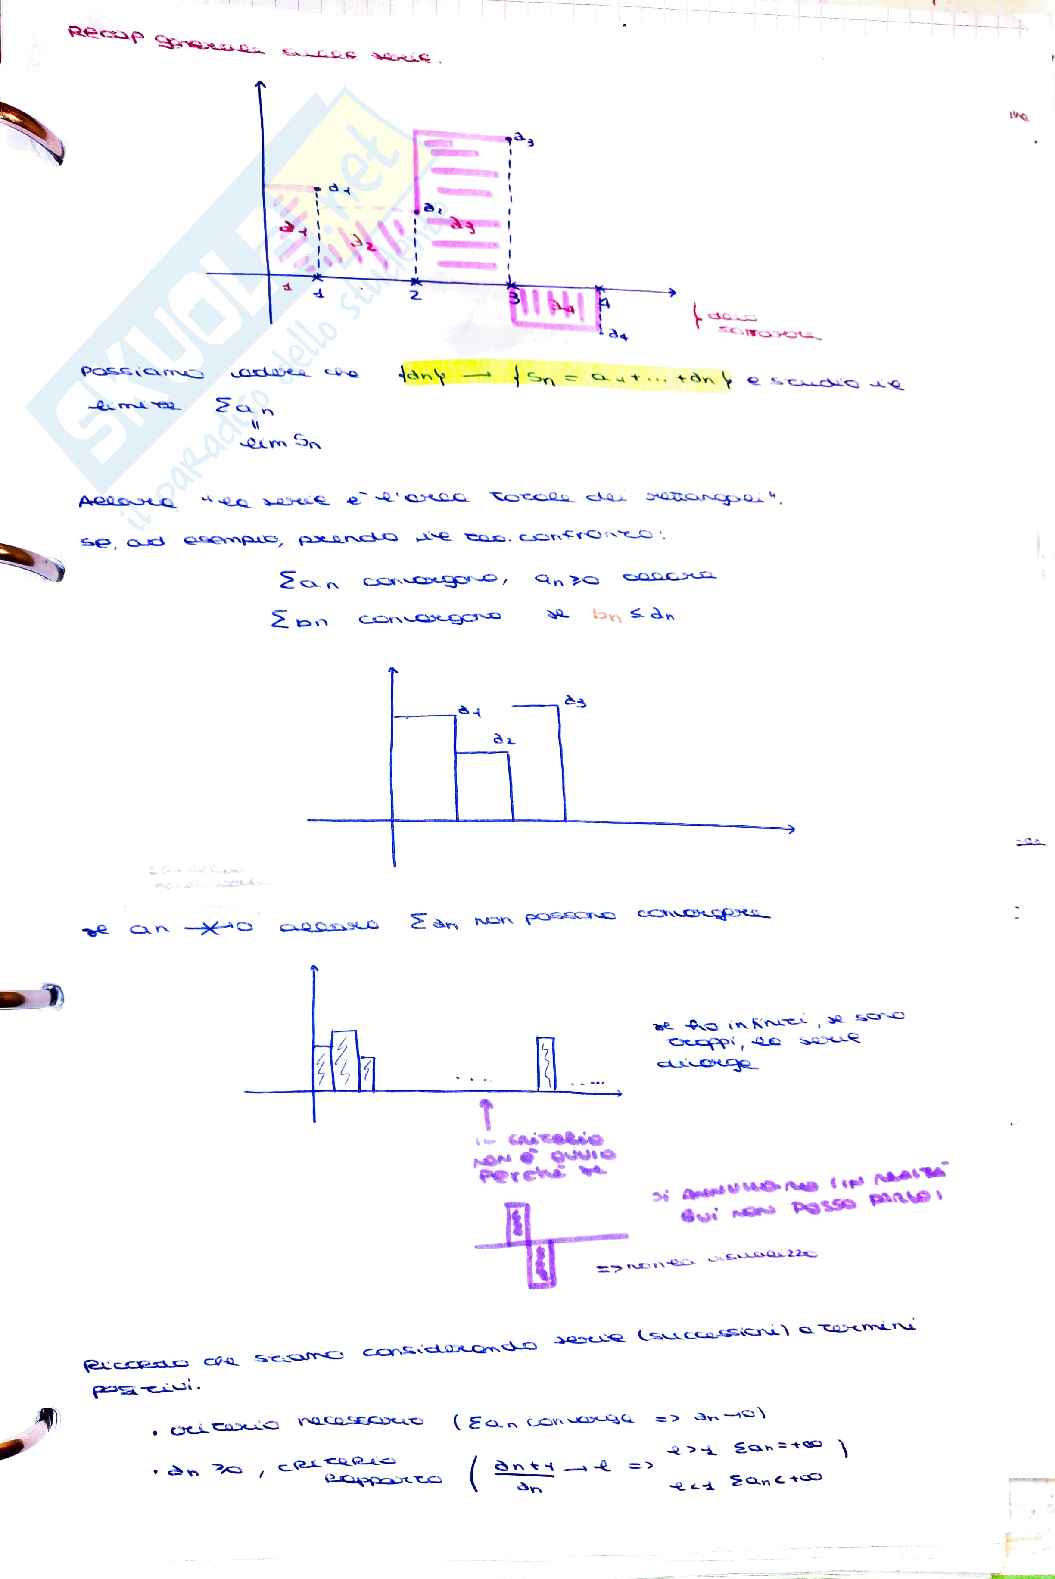 Recap generale sulle serie.
a3
a1
a2
a1
a2
a3
1
1
2
3
a4
4
a4
∫ della
sottoserie
possiamo vedere che {an} → {Sn = a1+...+an} e studio il
limite Σan
"
lim Sn
Allora "la serie è l'area totale dei rettangoli".
se, ad esempio, prendo il teo. confronto:
Σan convergono, an≥0 allora
Σbn convergono se bn ≤ an
a1
a2
a3
se an ↛ 0 allora Σan non possono convergere
se ho infiniti, se sono
troppi, la serie
diverge
.... .....
il criterio
non è ovvio
perché se
si annullano (in realtà
qui non posso farlo)
=> non la visualizzo
Ricordo che stiamo considerando serie (successioni) a termini
positivi.
• criterio necessario (Σan converge => an→0)
• an ≥0, criterio rapporto ( an+1/an → l => l>1 Σan=+∞ )
l<1 Σan<+∞
SKUOLA.net
il paradiso dello studente